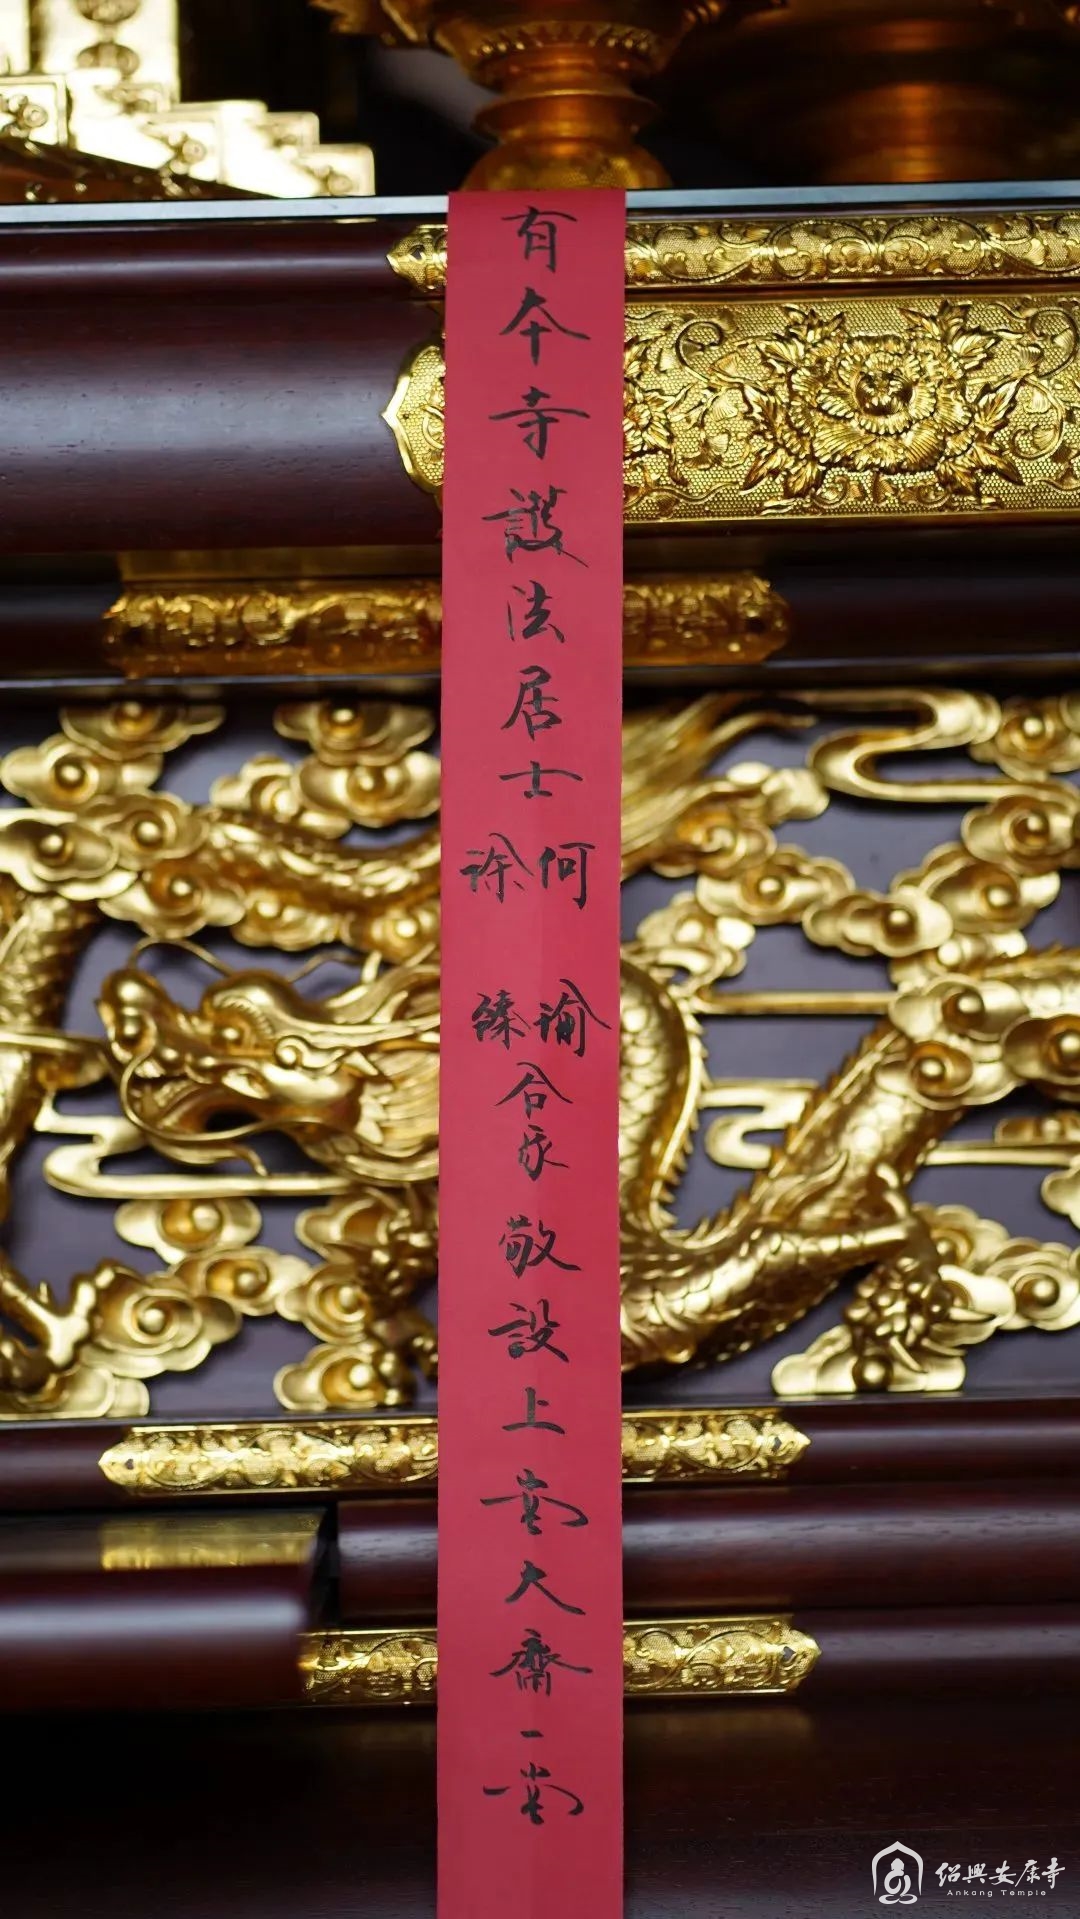 有本寺護法居士何瑜合家敬設上堂大齋一堂
徐臻
绍興安康寺
Ankang Temple